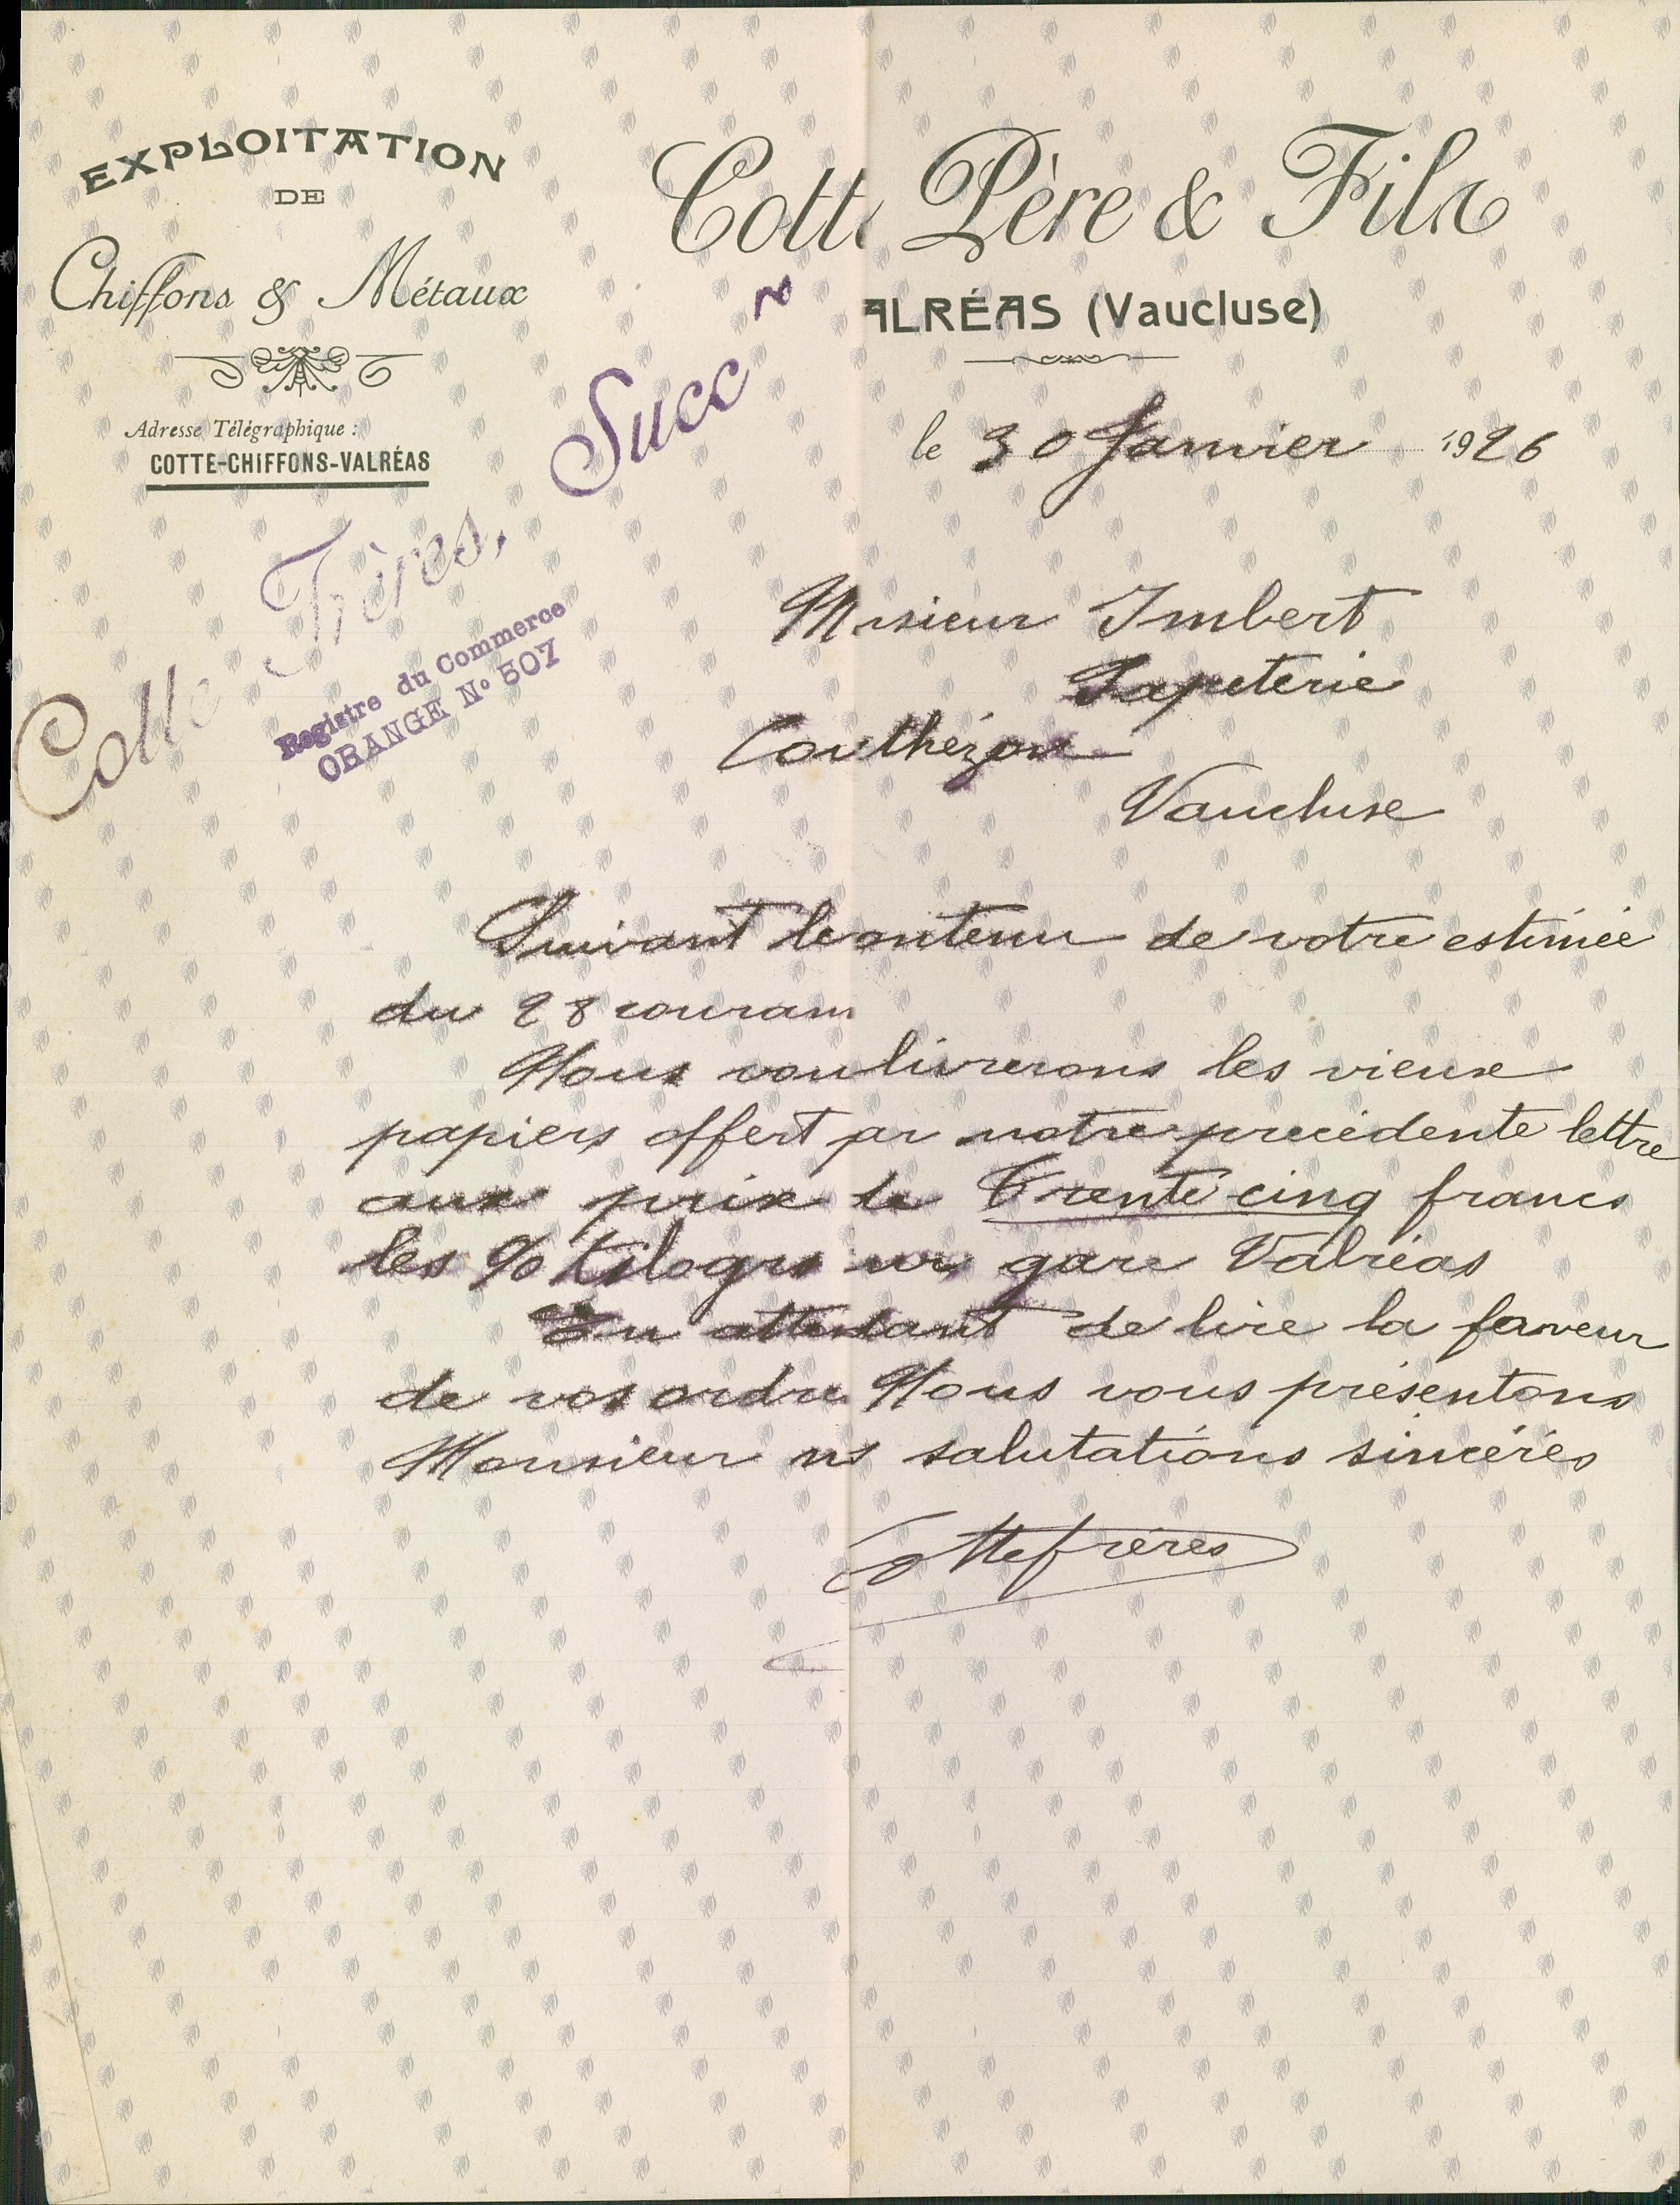 EXPLOITATION
DE
Chiffons & Métaux
Adresse Télégraphique :
COTTE-CHIFFONS-VALRÉAS
Cotte Père & Fils
ALRÉAS (Vaucluse)
Cotte Frères, Succ rs
Registre du Commerce
ORANGE No 507
le 30 Janvier 1926
Monsieur Imbert
Papeterie
Courthézon
Vaucluse
Suivant le contenu de votre estimée
du 28 courant
Nous vous livrerons les vieux
papiers offert par notre précédente lettre
aux prix de Trente cinq francs
les % Kilogrs sur gare Valréas
En attendant de lire la faveur
de vos ordre Nous vous présentons
Monsieur nos salutations sincéres
Cotte fréres